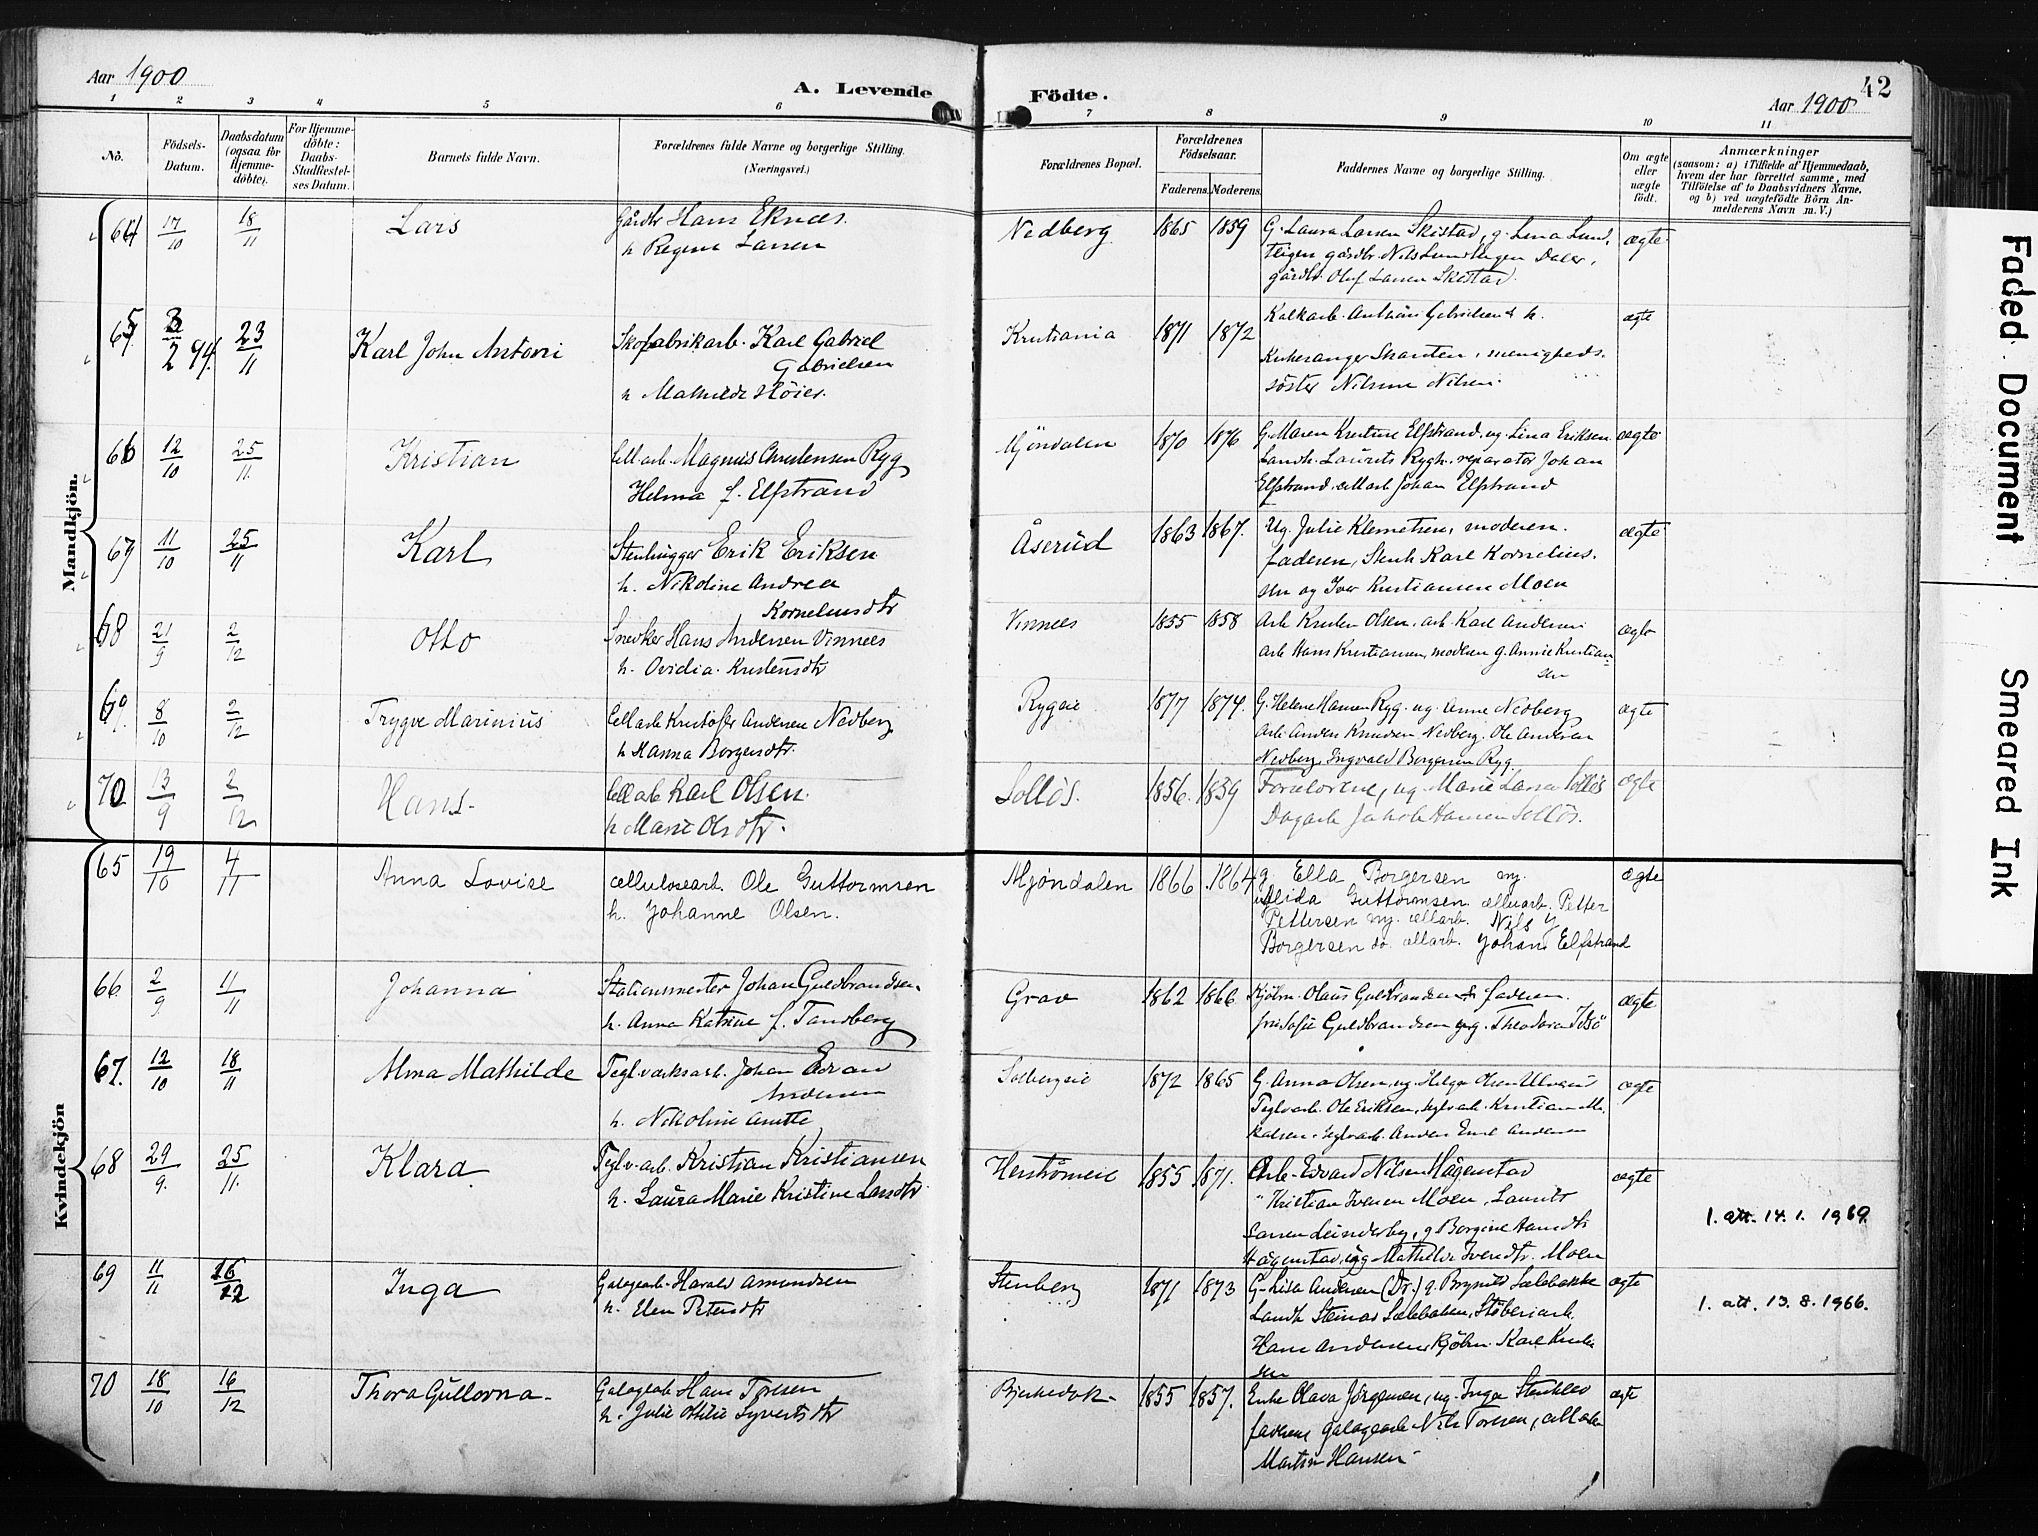 Aar 1900
A. Levende
Födte.
42
Aar 1900
1 2 3 4 5 6 7 8 9 10 11
No.
Födsels-Datum.
Daabsdatum (ogsaa for Hjemmedöbte).
For Hjemmedöbte: Daabs-Stadfæstelses Datum.
Barnets fulde Navn.
Forældrenes fulde Navne og borgerlige Stilling. (Næringsvei.)
Forældrenes Bopæl.
Forældrenes Födselsaar.
Faderens. Moderens.
Faddernes Navne og borgerlige Stilling.
Om ægte eller uægte födt.
Anmærkninger
(saasom: a) i Tilfælde af Hjemmedaab, hvem der har forrettet samme, med Tilföielse af to Daabsvidners Navne. og b) ved uægtefödte Börn Anmelderens Navn m. V.)
Mandkjön.
64 17/10 18/11 Lars Gårdbr Hans Eknæs. Nedberg 1865 1859 G. Laura Larsen Skistad, g. Lina Lund, ægte
h Regine Larsen
gårdbr Oluf Larsen Skistad.
65 2 94. 23/11 Karl John Antoni Skofabrikarb. Karl Gabriel Kristiania 1871 1872 ægte
Gabrielsen
h Mathilde Höier. söster Nilsine Nilsen.
66 12/10 25/11 Kristian Cell arb. Magnus Christensen Ryg Mjöndalen 1870 1876 G. Maren Kristine Elfstrand, ug. Lina Eriksen ægte
Landh. Laurits Rygh. reparatör Johan
Helma f. Elfstrand Elfstrand. cellarb Johan Elfstrand
67 11/10 25/11 Karl Stenhugger Erik Eriksen Åserud 1863 1867. Ug. Julie Klemetsen, moderen. ægte
h. Nikoline Andrea faderen, Stenh Karl Kornelius.
Kornelius dtr sen og Iver Kristiansen Moen
68 21/9 2/12 Otto Snedker Hans Andersen Vinnæs Vinnæs 1855 1858 Arb Kristen Olsen, arb Karl Andersen ægte
h. Ovidia Kristensdtr arb Hans Kristiansen, moderen g. Annie Kristian-
sen
69. 8/10 2/12 Trygve Marinius Cell arb Kristofer Andersen Nedberg Rygeie 1877 1874. G. Helene Hansen Ryg. ug. Anne Nedberg ægte
h Hanna Borgersdtr. Arb. Anders Knudsen Nedberg. Ole Andersen
Nedberg Ingvald Borgersen Ryg.
70 13/9 2/12 Hans. Cell arb Karl Olsen. Solløs. 1856. 1859 Forældrene, ug. Marie Larsen Solløs ægte
h Marie Olsdtr. Dagarb Jakob Hansen Solløs.
Kvindekjön
65 19/10 4/11 Anna Lovise cellulosearb. Ole Guttormsen Mjöndalen 1866 1864 g. Ella Borgersen ug. ægte
h. Johanne Olsen. Alida Guttormsen cellarb. Petter
Pettersen ug. cellarb. Nils
Borgersen do. cellarb. Johan Elfstrand
66 2/9 11/11 Johanna Stationsmester Johan Guldbrandsen. Grav 1862 1866 Kjöbm. Olaus Guldbrandsen faderen. ægte
h. Anna Katrine f. Tandberg fru Sofie Guldbrandsen ug. Theodora Idsö
67. 12/10 18/11 Alma Mathilde Teglværksarb. Johan Edvan Solbergeie 1872 1865 G. Anna Olsen, ug. Helga Olsen Ulvrand ægte
Andersen Teglv arb. Ole Eriksen, teglv arb. Kristian Mi-
h. Nikoline Anette kalsen. teglv arb. Anders Emil Andersen
68 29/9. 25/11. Klara Teglv. arb. Kristian Kristiansen 1855 1871. Arb. Edvard Nilsen Hågenstad ægte
h. Laura Marie Kristine Larsdtr " Kristian Iversen Moen, Laurits
1. att. 14. 1. 1969.
Hågenstad, ug Mathilde Iversdtr. Moen
69 11/11 16/12 Inga Galogearb. Harald Amundsen Stenberg 1871 1873 G. Lisa Andersen (Dr.) g. Brynild Sælebakke ægte
h. Elen Petersdtr Landh Steinar Sælebakke, Stöberiarb.
1. att. 13. 8. 1966.
Hans Andersen Kjöbm. Karl
sen
70 18/10 16/12 Thora Gullovna. Galogearb Hans Toresen 1855 1857. Enke Olava Jörgensen, ug. Inga Stenklev ægte
h. Julie Othilie Syvertsdtr faderen galogearb Nils Toresen, cell arb
Martin Hansen.
Faded Document
Smeared Ink